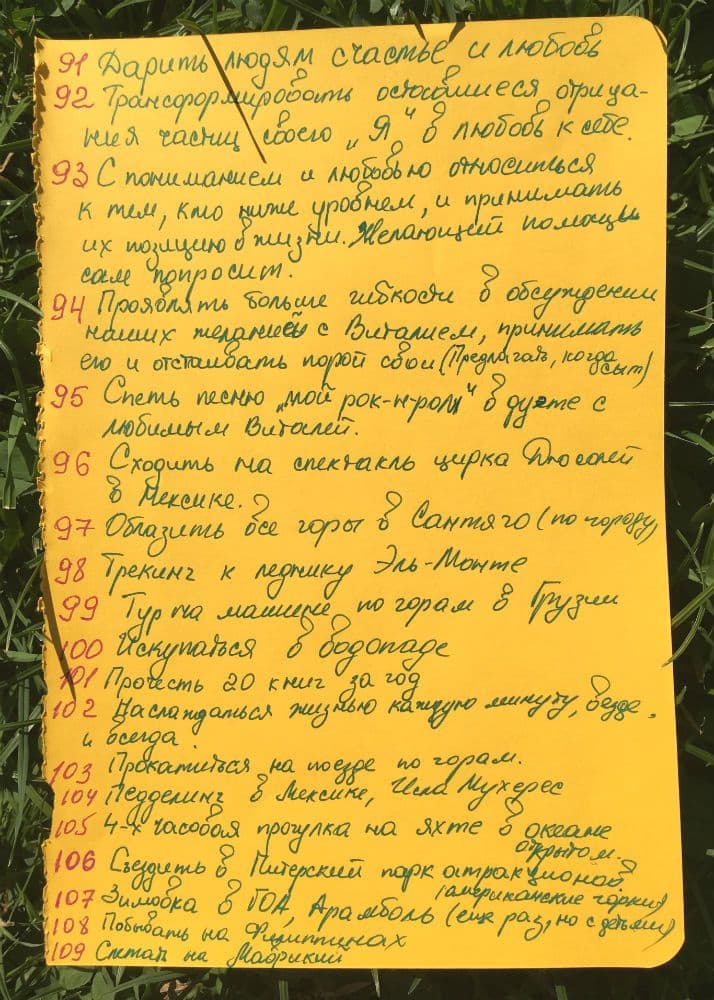 91 Дарить людям счастье и любовь
92 Трансформировать оставшиеся отрица-
ния частиц своего „Я“ в любовь к себе.
93 С пониманием и любовью относиться
к тем, кто ниже уровнем, и принимать
их позицию в жизни. Желающий помощи
сам попросит.
94 Проявлять больше гибкости в обсуждении
наших желаний с Виталием, принимать
его и отстаивать порой свои (Предлагать, когда
сыт)
95 Спеть песню „мой рок-н-ролл“ в дуэте с
любимым Виталей.
96 Сходить на спектакль цирка Дюсолей
в Мексике.
97 Облазить все горы в Сантяго (по городу)
98 Трекинг к леднику Эль-Монте
99 Тур на машине по горам в Грузии
100 Искупаться в водопаде
101 Прочесть 20 книг за год
102 Наслаждаться жизнью каждую минуту, везде
и всегда.
103 Прокатиться на поезде по горам.
104 Педделинг в Мексике, Исла Мухерес
105 4-х часовая прогулка на яхте в океане
открытом.
106 Съездить в Питерский парк атракционов
(американские горки)
107 Зимовка в ГОА, Арамболь (еще раз, но с детьми)
108 Побывать на Филиппинах
109 Слетать на Маврикий